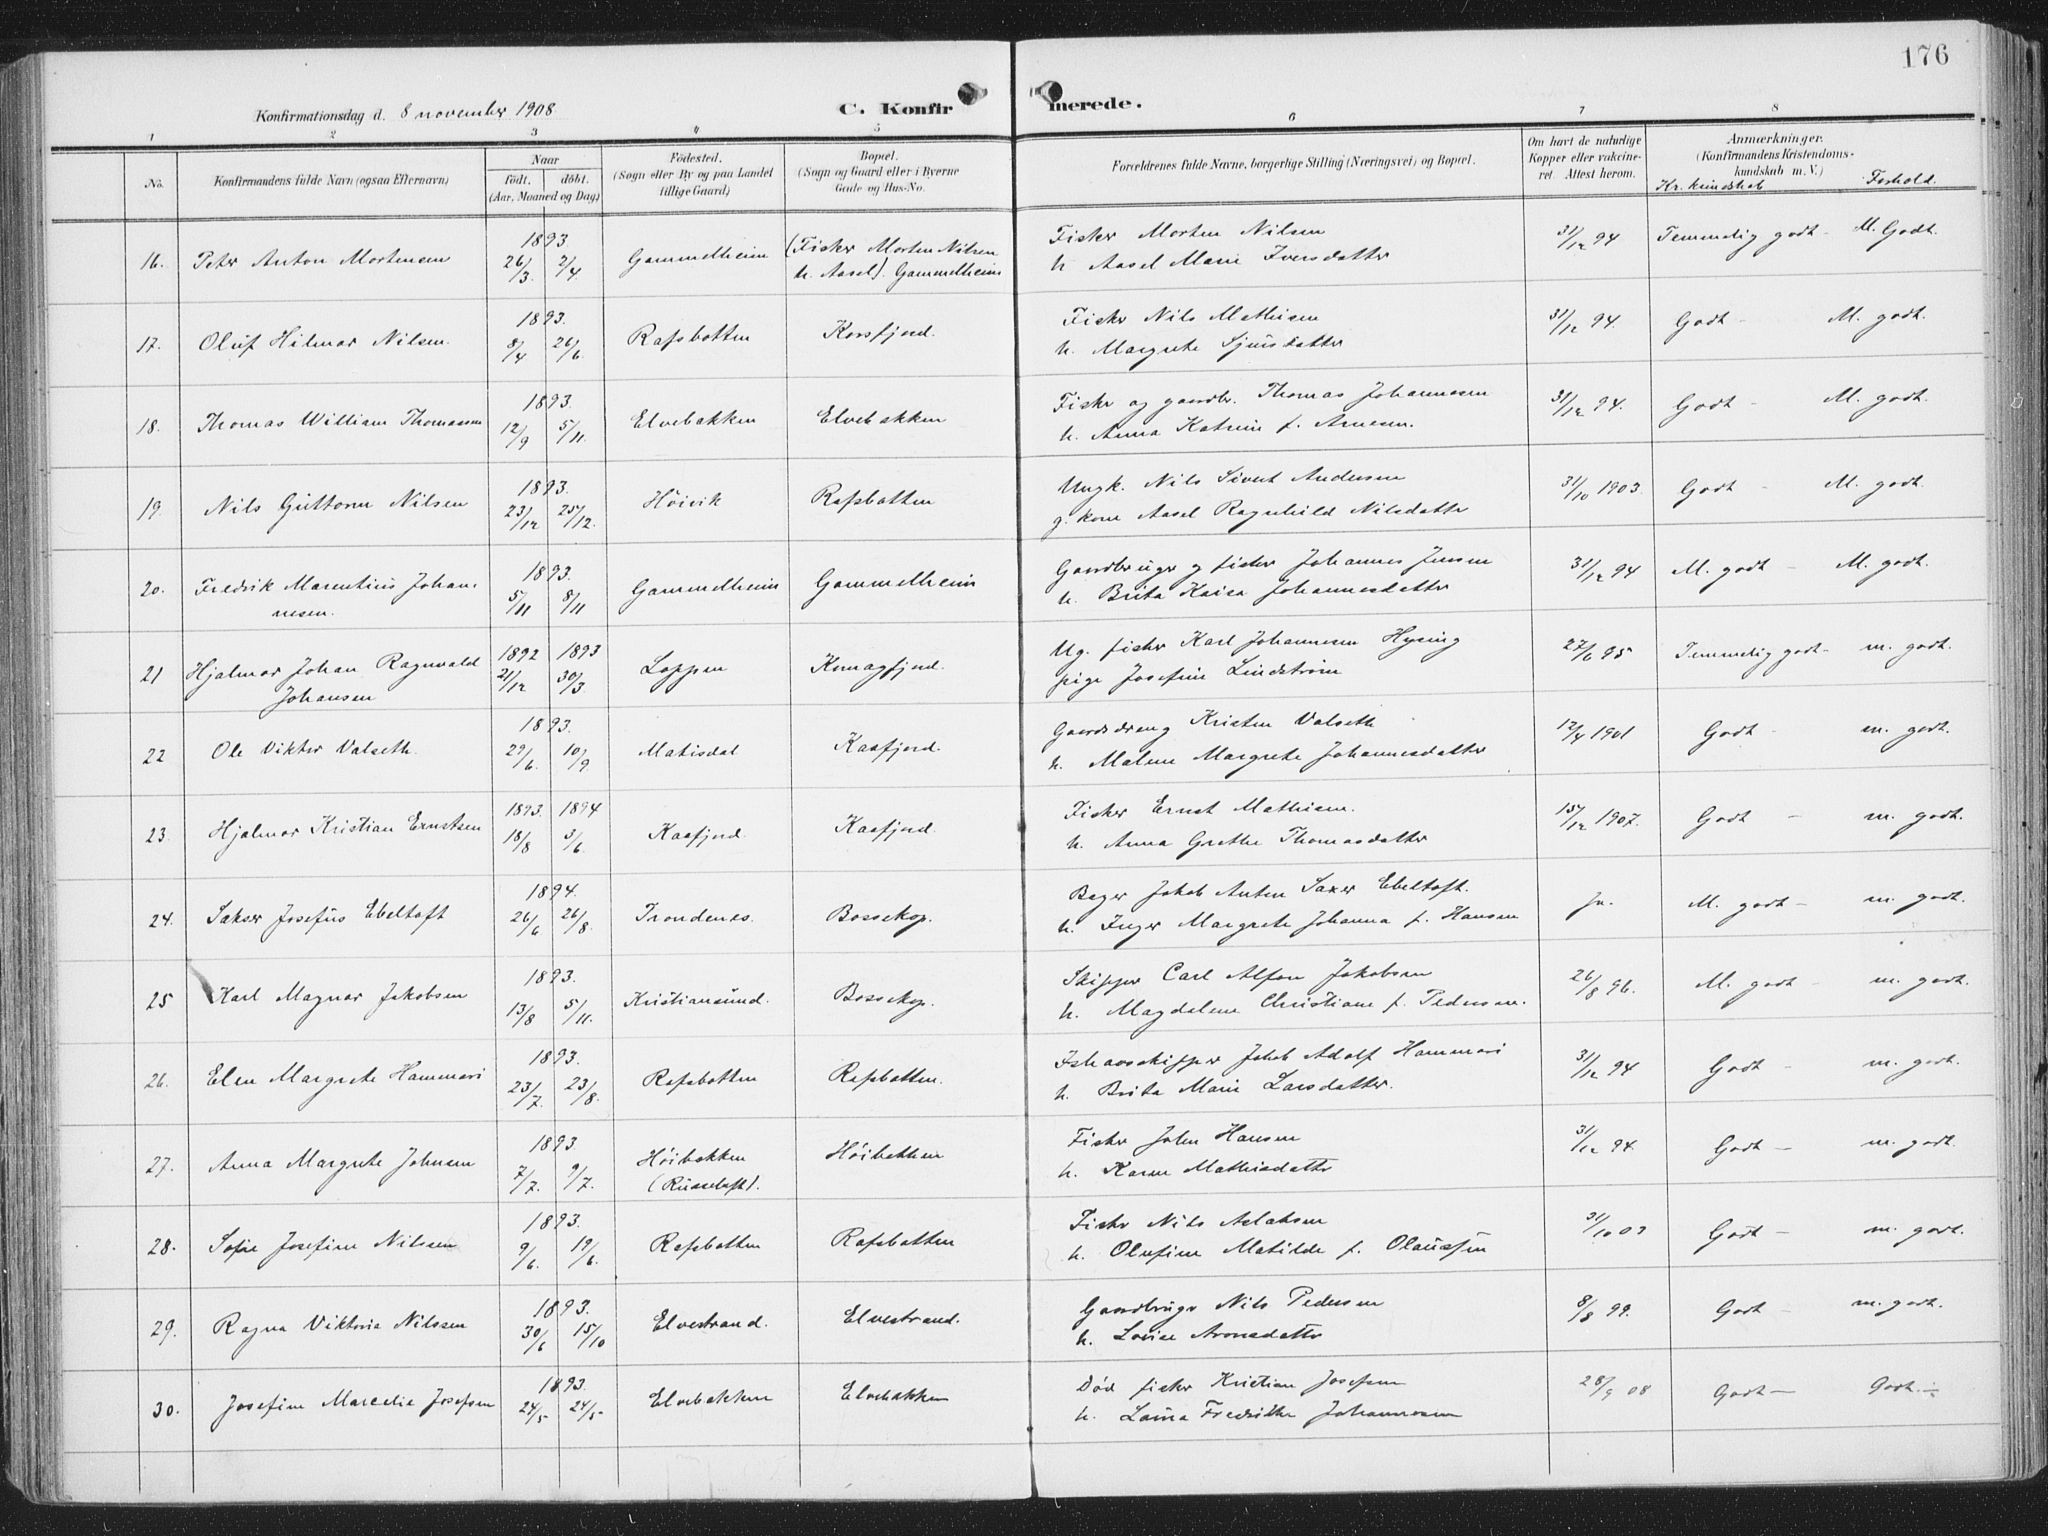 176
Konfirmationsdag d. 8 november 1908
C. Konfirmerede.
1 2 3 4 5 6 7 8
No. Konfirmandens fulde Navn (ogsaa Efternavn) Naar født. døbt. (Aar, Maaned og Dag) Fødested. (Sogn eller By og paa Landet tillige Gaard) Bopæl. (Sogn og Gaard eller i Byerne Gade og Hus-No. Forældrenes fulde Navne, borgerlige Stilling (Næringsvei) og Bopæl. Om havt de naturlige Kopper eller vakcineret. Attest herom. Anmærkninger. (Konfirmandens Kristendomskundskab m. V.)
Kr. kundskab Forhold.
16. Peter Anton Mortensen 1893. 26/3. 2/4 Gammelheim (Fisker Morten Nilsen h. Aasel). Gammelheim Fisker Morten Nilsen 31/12 94 Temmelig godt - M. Godt.
h. Aasel Marie Iversdatter
17. Oluf Hilmar Nilsen. 1893. 8/4 26/6 Rafsbotten Korsfjord. Fisker Nils Mathisen 31/12 94. Godt - M. godt.
h. Margrete Sjursdatter
18. Thomas William Thomassen 1893. 12/9 5/11. Elvebakken Elvebakken Fisker og gaardbr. Thomas Johannesen 31/12 94. Godt - M. godt.
h. Anna Katrine f. Arnesen.
19. Nils Guttorm Nilsen 1893. 23/12 25/12. Höivik Rafsbotten Ungk. Nils Sivert Andersen 31/10 1903. Godt - M. godt.
g. kone Aasel Ragnhild Nilsdatter
20. Fredrik Marentius Johannesen. 1893. 5/11 8/11 Gammelheim Gammelheim Gaardbruger g fisker Johannes Jensen 31/12 94 M. godt - M. godt.
h. Brita Kaisa Johannesdatter
21 Hjalmar Johan Ragnvald Johansen 1892 21/12 1893 30/3. Loppen Komagfjord. Ug. fisker Karl Johannesen Hysing 27/6 95 Temmelig godt - m. godt.
pige Josefine Lindström
22 Ole Viktor Valseth. 1893. 29/6. 10/9. Matisdal Kaafjord. Gaardsdreng Kristen Valseth 12/4 1901 Godt - m. godt.
h. Malene Margrete Johannesdatter
23. Hjalmar Kristian Ernstsen 1893. 18/8 1894 3/6. Kaafjord Kaafjord. Fisker Ernst Mathisen. 15/12 1907. Godt - m. godt.
h. Anna Grethe Thomasdatter
24. Sakser Josefus Ebeltoft 1894. 26/6 26/8. Trondenes. Bossekop. Bager Jakob Anton Saxer Ebeltoft. Ja. M. godt - m. godt.
h. Inger Margrete Johanna f. Hansen
25 Karl Magnar Jakobsen 1893. 13/8 5/11. Kristiansund. Bossekop. Skipper Carl Alfon Jakobsen 26/8 96. M. godt - m. godt.
h. Magdalene Christiane f. Pedersen.
26. Elen Margrete Hammari 1893. 23/7. 23/8. Rafsbotten Rafsbotten. Ishavsskipper Jakob Adolf Hammari 31/12 94 Godt - m. godt.
h. Brita Marie Larsdatter.
27. Anna Margrete Johnsen 1893. 7/7. 9/7. Höibakken (Russeluft). Höibakken Fisker John Hansen 31/12 94. Godt - m. godt.
h. Karen Mathisdatter
28. Sofie Josefine Nilssen 1893. 9/6. 19/6. Rafsbotten Rafsbotten Fisker Nils Aslaksen 31/10 03 Godt - m. godt.
h. Olufine Matilde f. Olaussen
29. Ragna Viktoria Nilssen 1893. 30/6 15/10 Elvestrand. Elvestrand. Gaardbruger Nils Pedersen 8/8 99. Godt - m. godt.
h. Lovise Aronsdatter
30. Josefine Marcelie Josefsen 1893. 24/5 24/5 Elvebakken Elvebakken Död fisker Kristian Josefsen 28/9 08 Godt - Godt. -
h. Laura Fredrikke Johannesen